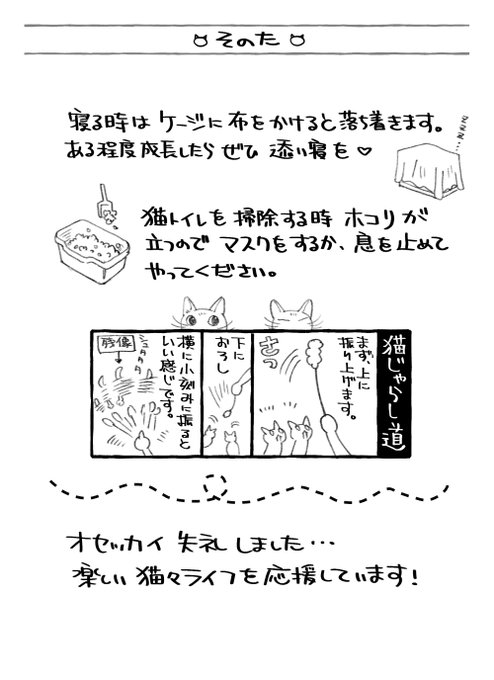 そのた
寝る時は ケージに 布をかけると落ち着きます。
ある程度成長したら ぜひ 添い寝を♡
ZZZ…
猫トイレを掃除する時 ホコリが
立つので マスクをするか、息を止めて
やってください。
猫じゃらし道
まず、上に
振り上げます。
さっ
下に
おろし
横に小刻みに振ると
いい感じです。
シュタタタ
残像
オセッカイ 失礼しました…
楽しい 猫々ライフを応援しています!